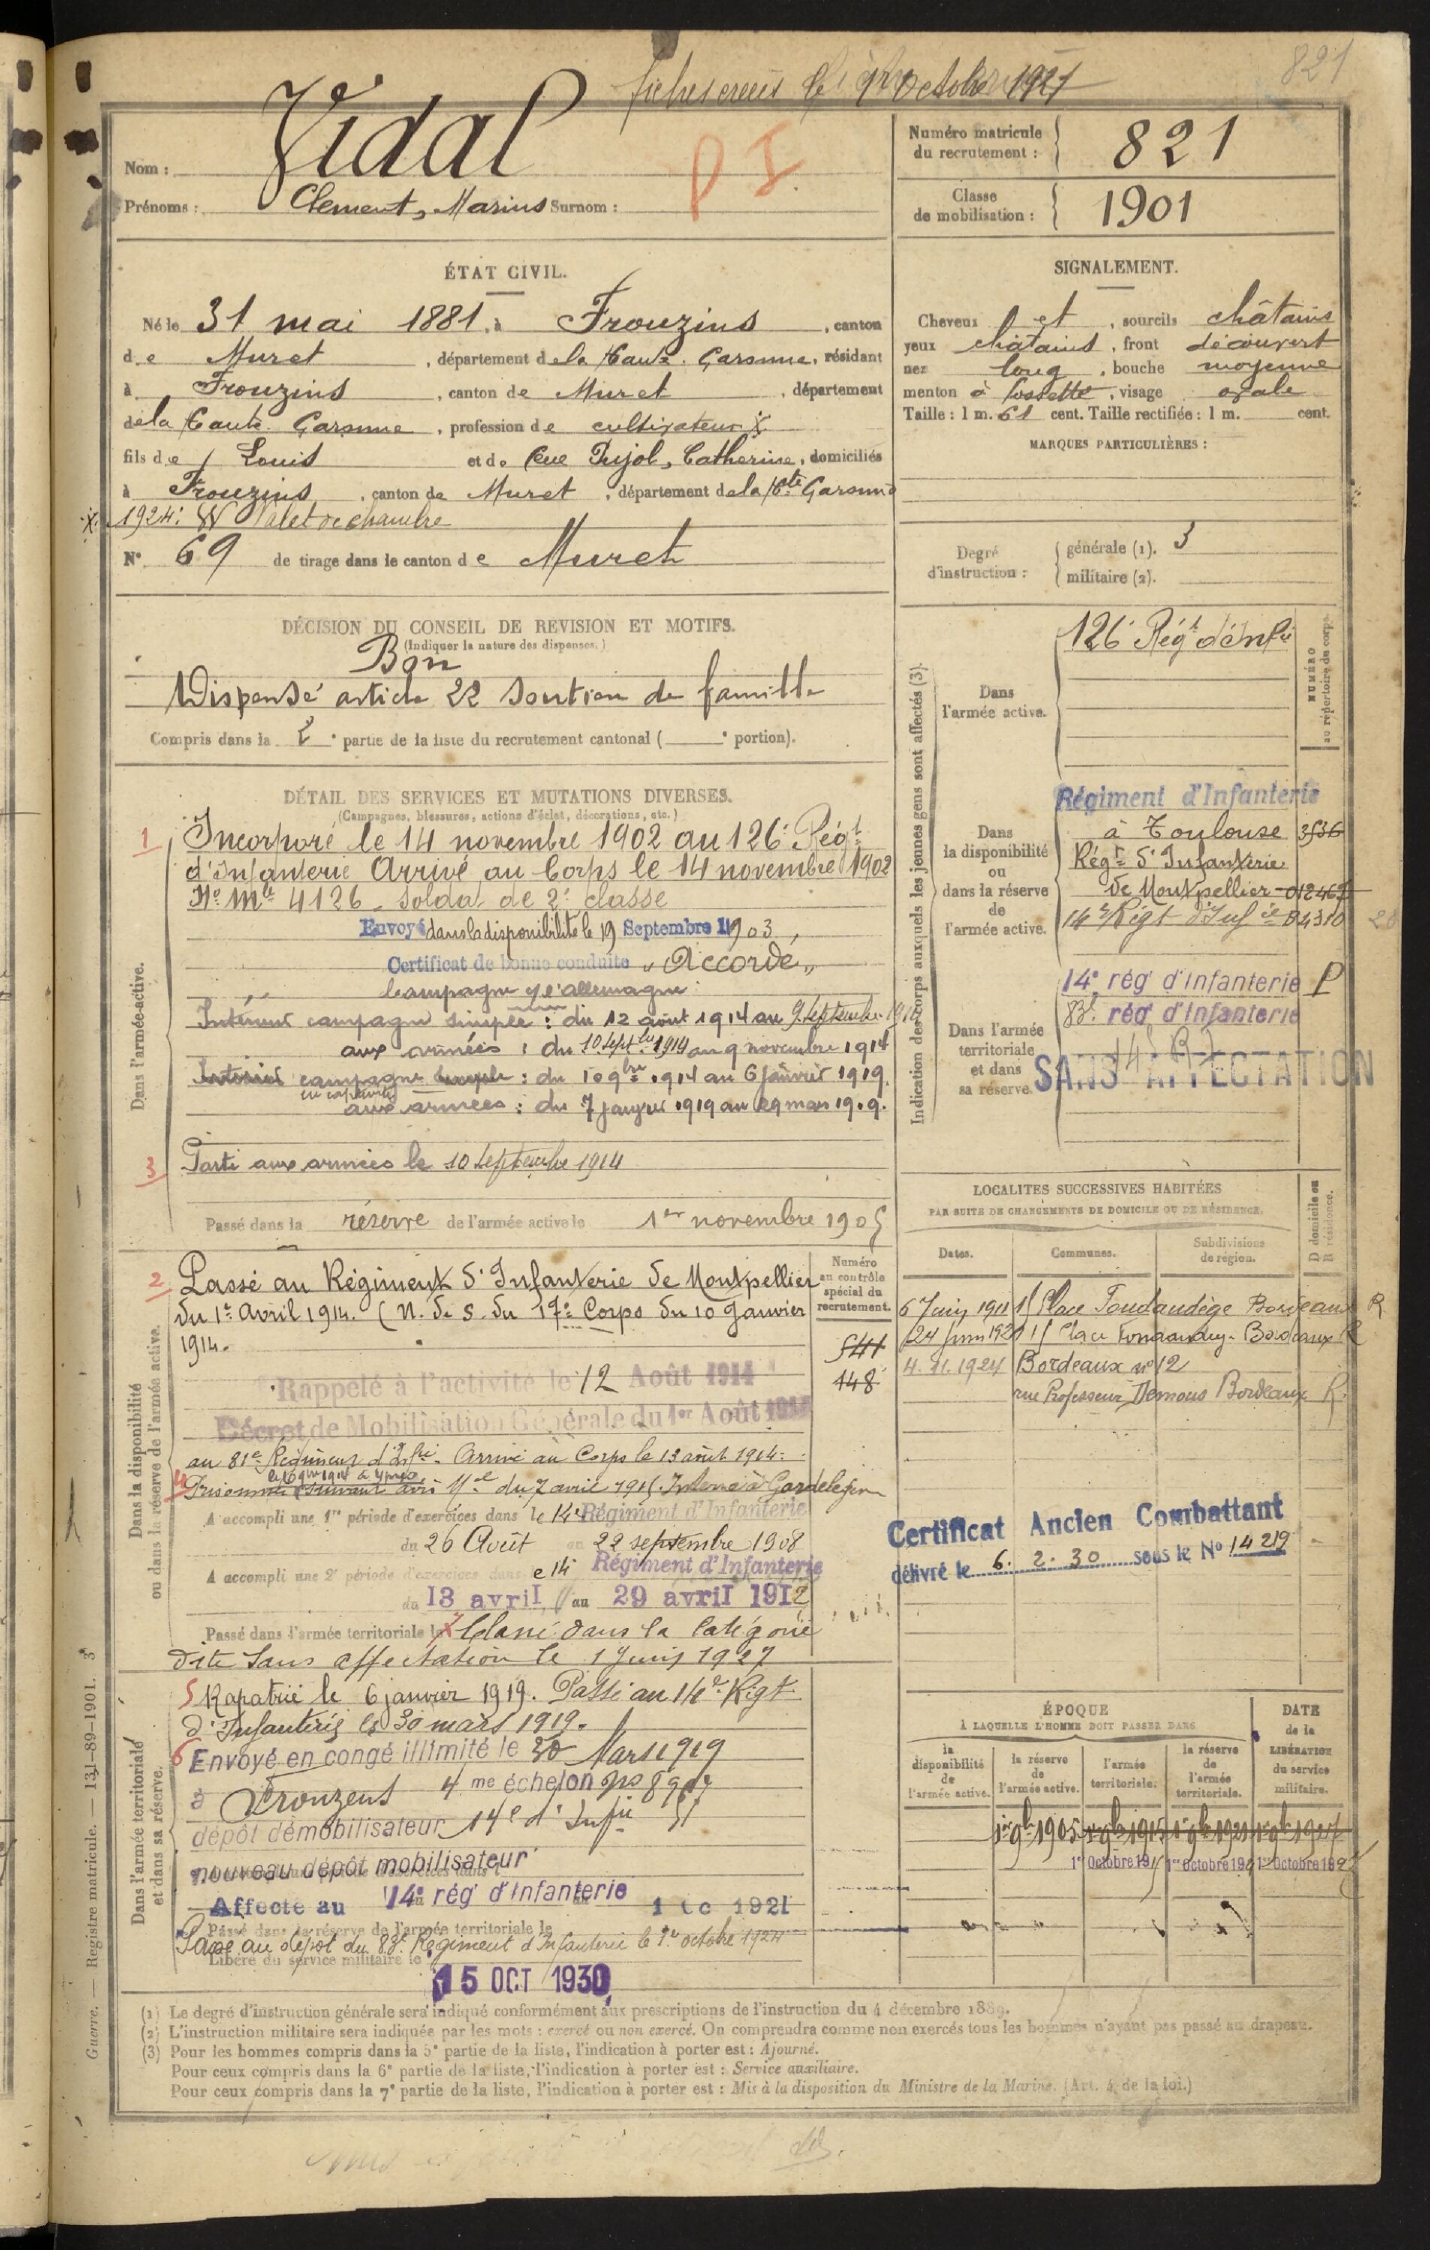 fiches creées le 1er Octobre 1921
821
Nom : Vidal
Prénoms : Clement, Marius Surnom :
P I
Numéro matricule du recrutement : 821
Classe de mobilisation : 1901
ÉTAT CIVIL.
Né le 31 mai 1881, à Frouzins, canton
de Muret, département de la Haute Garonne, résidant
à Frouzins, canton de Muret, département
de la Haute Garonne, profession de cultivateur x
fils de Louis et de feue Pujol, Catherine, domiciliés
à Frouzins, canton de Muret, département de la Hte Garonne
x 1924: Valet de chambre
N° 69 de tirage dans le canton de Muret
SIGNALEMENT.
Cheveux et, sourcils châtains
yeux châtains, front découvert
nez long, bouche moyenne
menton à fossette, visage ovale
Taille : 1 m. 61 cent. Taille rectifiée : 1 m. cent.
MARQUES PARTICULIÈRES :
Degré d'instruction : générale (1). 3
militaire (2).
DÉCISION DU CONSEIL DE REVISION ET MOTIFS.
(Indiquer la nature des dispenses.)
Bon
Dispensé article 22 soutien de famille
Compris dans la 2e partie de la liste du recrutement cantonal ( e portion).
DÉTAIL DES SERVICES ET MUTATIONS DIVERSES.
(Campagnes, blessures, actions d'éclat, décorations, etc.)
Dans l'armée active.
1 Incorporé le 14 novembre 1902 au 126e Régt
d'Infanterie Arrivé au Corps le 14 novembre 1902
No Mle 4126 soldat de 2e classe
Envoyé dans la disponibilité le 19 Septembre 1903,
Certificat de bonne conduite "Accordé"
Campagne c/ l'allemagne :
Intérieur campagne simple : du 12 août 1914 au 9 septembre 1914
aux armées : du 10 septbre 1914 au 9 novembre 1914
Intérieur campagne simple : du 10 9bre 1914 au 6 janvier 1919.
en captivité
aux armées : du 7 janvier 1919 au 29 mars 1919.
3 Parti aux armées le 10 septembre 1914
Passé dans la réserve de l'armée active le 1er novembre 1905
Dans la disponibilité ou dans la réserve de l'armée active.
2 Passé au Régiment d'Infanterie de Montpellier
du 1er Avril 1914. (N. de S. du 17e Corps du 10 Janvier
1914.
Numéro au contrôle spécial du recrutement.
541
148
Rappelé à l'activité le 12 Août 1914
Décret de Mobilisation Générale du 1er Août 1914
au 81e Régiment d'Infie Arrivé au Corps le 13 août 1914.
le 10 9bre 1914 à Ypres
4 Prisonnier suivant avis Mel du 7 avril 1915 Interné à Gardelegen
A accompli une 1re période d'exercices dans le 14e Régiment d'Infanterie
du 26 Août au 22 septembre 1908
A accompli une 2e période d'exercices dans le 14e Régiment d'Infanterie
du 13 avril au 29 avril 1912
Passé dans l'armée territoriale le 7 Classé dans la Catégorie
dite Sans affectation le 1 Juin 1927
Dans l'armée territoriale et dans sa réserve.
5 Rapatrié le 6 janvier 1919. Passé au 14e Régt
d'Infanterie le 30 mars 1919.
6 Envoyé en congé illimité le 30 Mars 1919
à Frouzens 4me échelon
dépôt démobilisateur 14e d'Infie
nouveau dépôt mobilisateur
Affecté au 14e rég d'Infanterie
Passé dans la réserve de l'armée territoriale le
Passé au dépôt du 83e Régiment d'Infanterie le 1er octobre 1924
Libéré du service militaire le 15 OCT 1930
Indication des corps auxquels les jeunes gens sont affectés (3).
NUMÉRO au répertoire du corps.
Dans l'armée active.
126e Régt d'Infie
Dans la disponibilité ou dans la réserve de l'armée active.
Régiment d'Infanterie
à Toulouse 3536
Régt d'Infanterie
de Montpellier
14e Régt d'Infie 04310
Dans l'armée territoriale et dans sa réserve.
14e rég d'Infanterie P
83e rég d'Infanterie
SANS AFFECTATION
LOCALITÉS SUCCESSIVES HABITÉES
PAR SUITE DE CHANGEMENTS DE DOMICILE OU DE RÉSIDENCE.
Dates. Communes. Subdivisions de région. D domicile ou R résidence.
6 Juin 1911 Place Bordeaux R
24 Juin 1921 Place Bordeaux R
4. 11. 1924 Bordeaux n° 12
rue Professeur Demons Bordeaux R.
Certificat Ancien Combattant
délivré le 6. 2. 30 sous le No 14219
ÉPOQUE
À LAQUELLE L'HOMME DOIT PASSER DANS
DATE de la LIBÉRATION du service militaire.
la disponibilité de l'armée active.
la réserve de l'armée active.
l'armée territoriale.
la réserve de l'armée territoriale.
1er 9bre 1905 1er 9bre 1915 1er 9bre 1921 1er 9bre 1927
1er Octobre 1915 1er octobre 1921 1er Octobre 1927
(1) Le degré d'instruction générale sera indiqué conformément aux prescriptions de l'instruction du 4 décembre 1889.
(2) L'instruction militaire sera indiquée par les mots : exercé ou non exercé. On comprendra comme non exercés tous les hommes n'ayant pas passé au drapeau.
(3) Pour les hommes compris dans la 5e partie de la liste, l'indication à porter est : Ajourné.
Pour ceux compris dans la 6e partie de la liste, l'indication à porter est : Service auxiliaire.
Pour ceux compris dans la 7e partie de la liste, l'indication à porter est : Mis à la disposition du Ministre de la Marine. (Art. 4 de la loi.)
Guerre. — Registre matricule. — 131-89-1901.